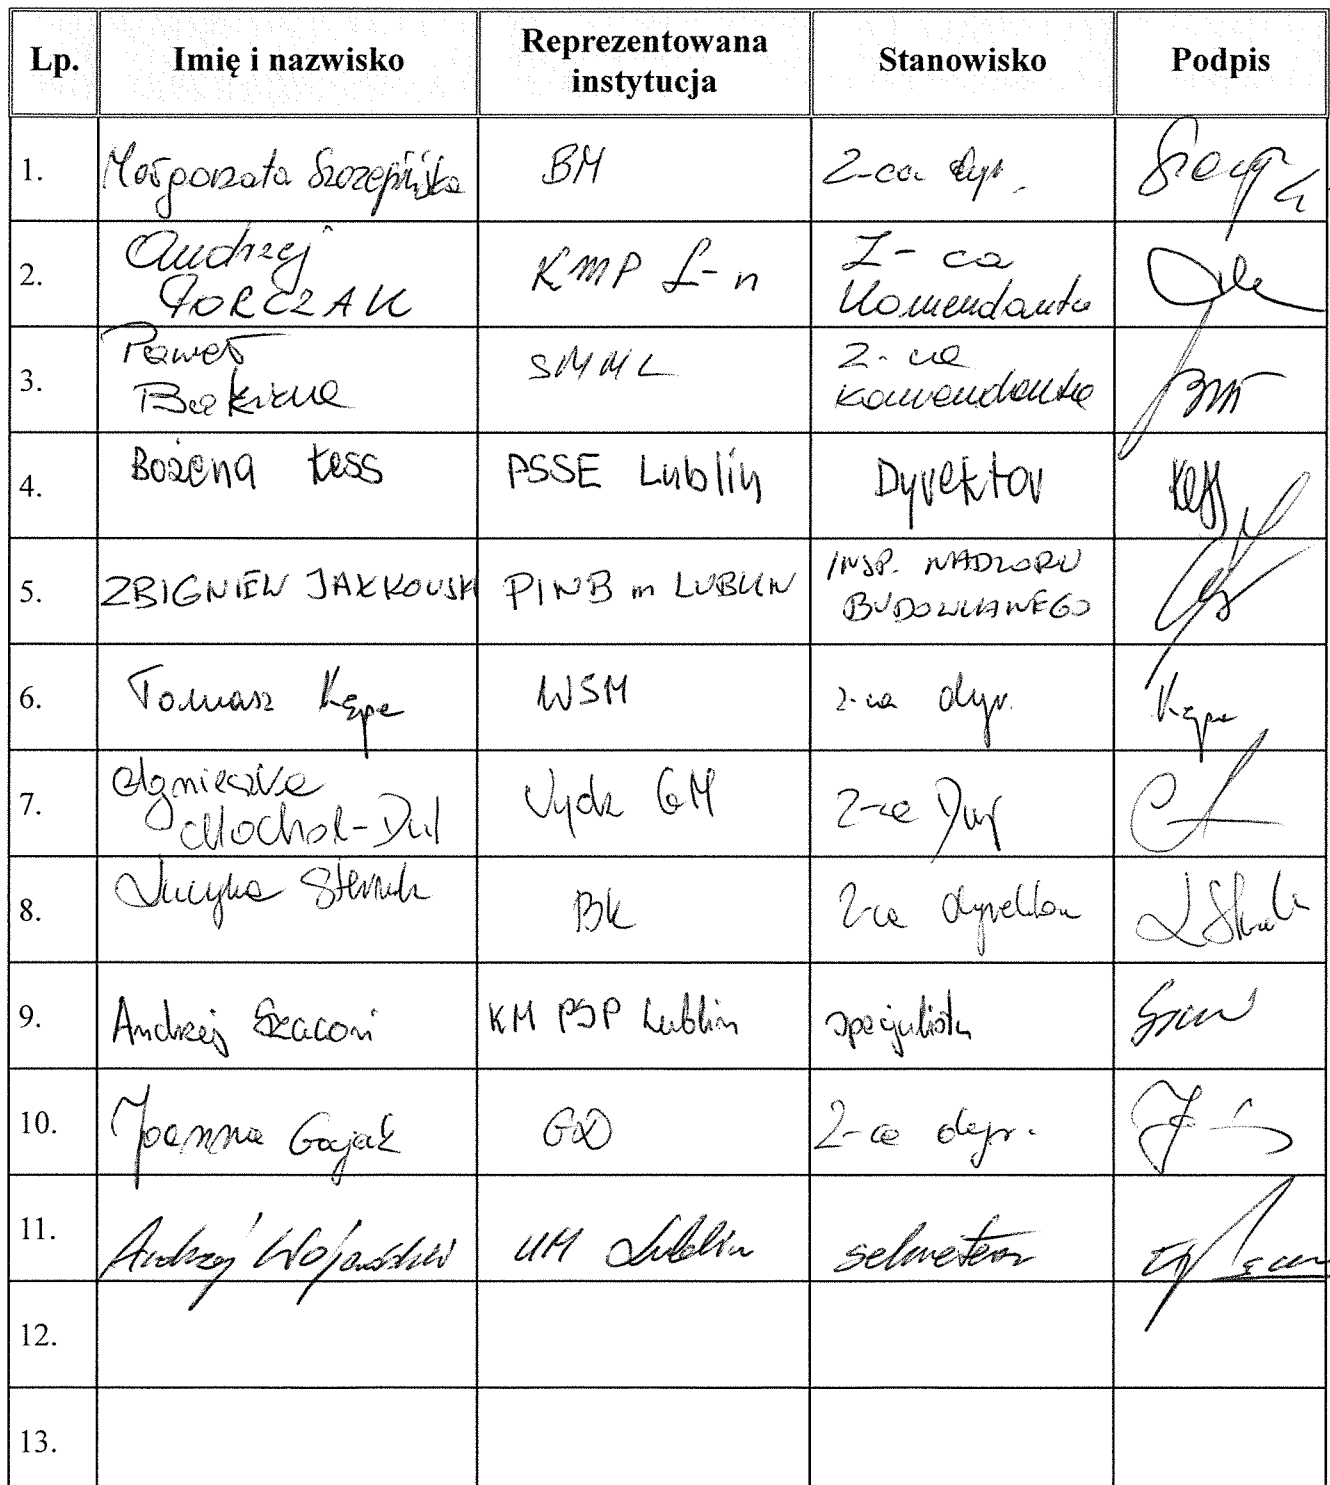 Lp. Imię i nazwisko Reprezentowana instytucja Stanowisko Podpis
1. Małgorzata Szczepińska BM Z-ca dyr.
2. Andrzej GORCZAK KMP L-n Z-ca Komendanta
3. Paweł Bakiera SMML Z-ca Komendanta
4. Bożena Kess PSSE Lublin Dyrektor Kess
5. ZBIGNIEW JAKKOWSKI PINB m LUBLIN INSP. NADZORU BUDOWLANEGO
6. Tomasz Kępa WSM Z-ca dyr. Kępa
7. Agnieszka Mochol-Dul Wydz GM Z-ca Dyr
8. Lucyna Sternik BK Z-ca dyrektora
9. Andrzej Szacoń KM PSP Lublin specjalista
10. Joanna Gajak GD Z-ca dyr.
11. Andrzej UM Lublin sekretarz
12.
13.